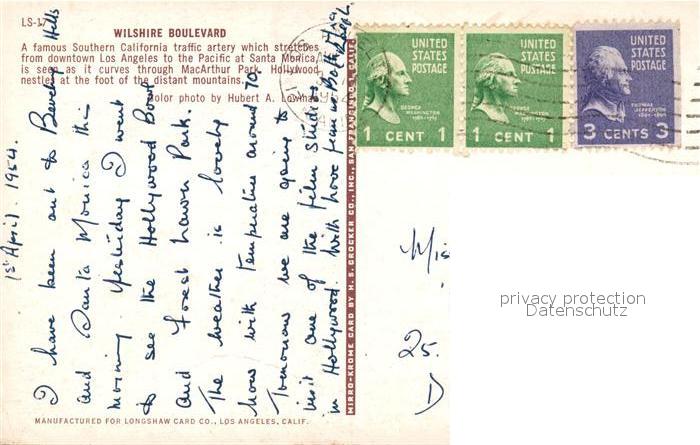 LS-17
WILSHIRE BOULEVARD
A famous Southern California traffic artery which stretches
from downtown Los Angeles to the Pacific at Santa Monica,
is seen as it curves through MacArthur Park. Hollywood
nestles at the foot of the distant mountains.
Color photo by Hubert A. Lowman
1st April. 1954.
I have been out to Beverley Hills
and Santa Monica this
morning. Yesterday I went
to see the Hollywood Bowl
and Forest Lawn Park.
The weather is lovely
now with temperature around 70.
Tomorrow we are going to
visit one of the film studios
in Hollywood. With love from
MANUFACTURED FOR LONGSHAW CARD CO., LOS ANGELES, CALIF.
MIRRO-KROME CARD BY H. S. CROCKER CO., INC., SAN FRANCISCO 1, CALIF.
UNITED
STATES
POSTAGE
GEORGE
WASHINGTON
1 CENT 1
UNITED
STATES
POSTAGE
GEORGE
WASHINGTON
1 CENT 1
UNITED
STATES
POSTAGE
THOMAS
JEFFERSON
3 CENTS 3
Mis
25.
D
privacy protection
Datenschutz